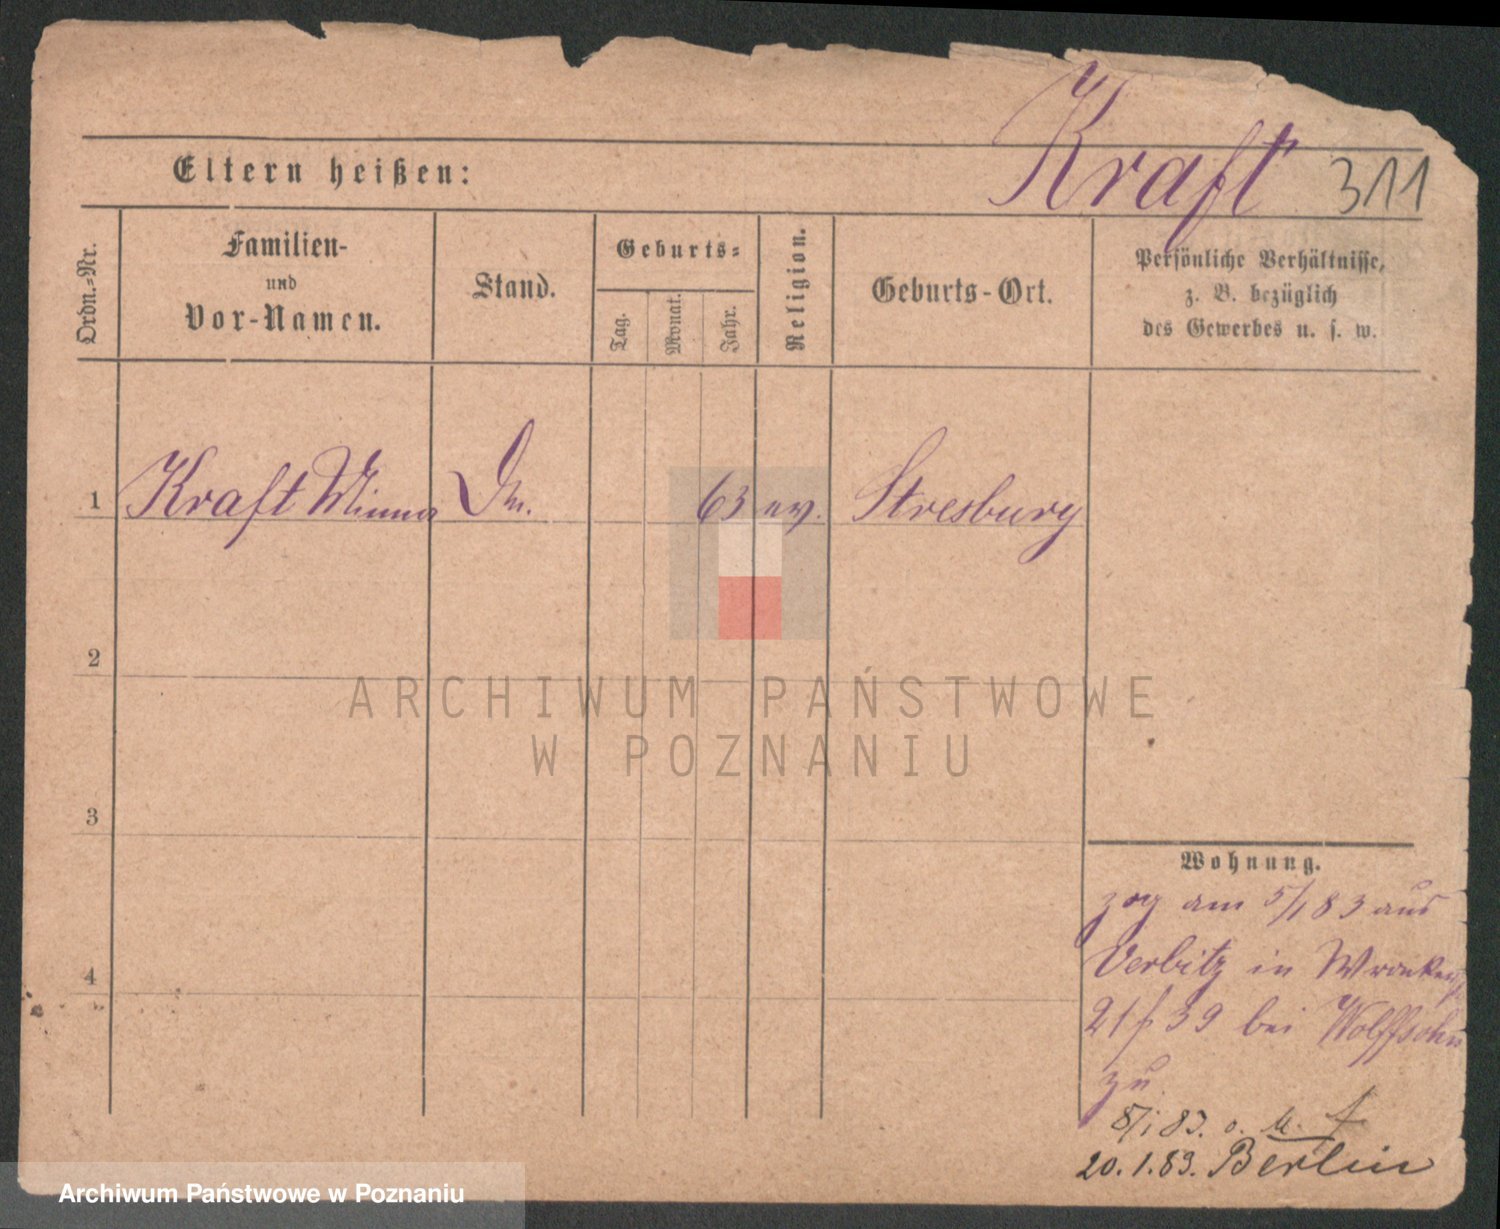 Kraft 311
Eltern heißen:
Ordn.-Nr.
Familien-
und
Vor-Namen.
Stand.
Geburts-
Tag.
Monat.
Jahr.
Religion.
Geburts-Ort.
Persönliche Verhältnisse,
z. B. bezüglich
des Gewerbes u. s. w.
1 Kraft Minna 63 ev. Stresburg
2
3
4
ARCHIWUM PAŃSTWOWE
W POZNANIU
Wohnung.
zog am 5/1 83 aus
Verbitz in
21 f 39 bei Wolffsohn
zu
8/1 83. o.
20.1.83. Berlin
Archiwum Państwowe w Poznaniu